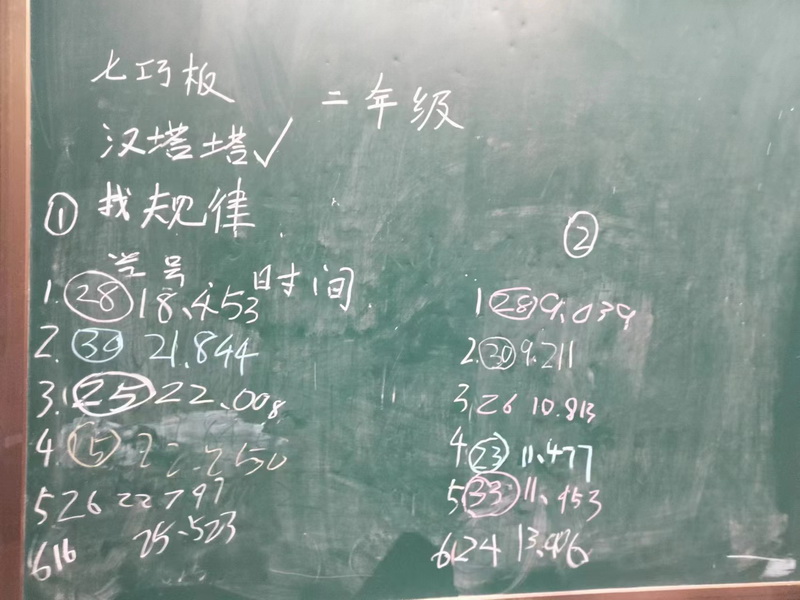 七巧板
二年级
汉塔塔✓
① 找规律
学号 时间
1. 28 18.453
2. 30 21.844
3. 25 22.008
4. 15
5 26 22797
6 16 25.523
②
1 28 9.039
2. 30 9.211
3, 26 10.813
4 23 11.477
5 33 11.453
6. 24 13.406